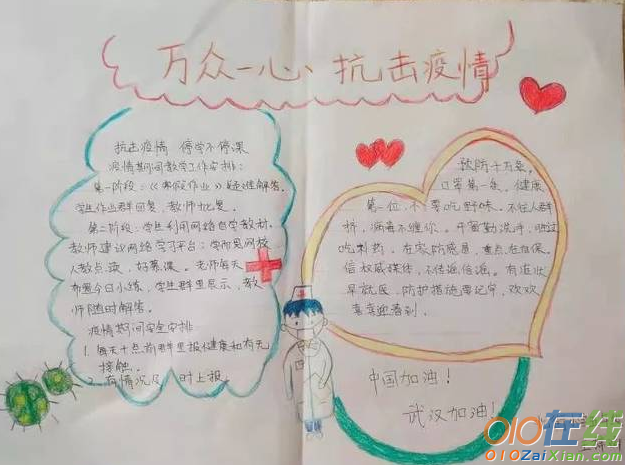 万众一心、抗击疫情
抗击疫情 停学不停课
疫情期间教学工作安排:
第一阶段:《寒假作业》疑难解答。
学生作业群回复,教师批复。
第二阶段:学生利用网络自学教材,
教师建议网络学习平台:学而思网校,
人教点读,好赛课。老师每天
布置今日小练,学生群里展示,教
师随时解答。
疫情期间安全安排
1、每天十点前群里报健康和有无
接触。
2、有情况及时上报。
预防千万条,
口罩第一条,健康
第一位,不要吃野味。不在人群
挤,病毒不缠你。开窗勤洗手,
吃料药。在家防感冒,重点在自保。
信权威媒体,不传谣信谣。有症状
早就医,防护措施要记牢,欢欢
喜喜迎春到。
中国加油!
武汉加油!
010在线
010ZaiXian.com